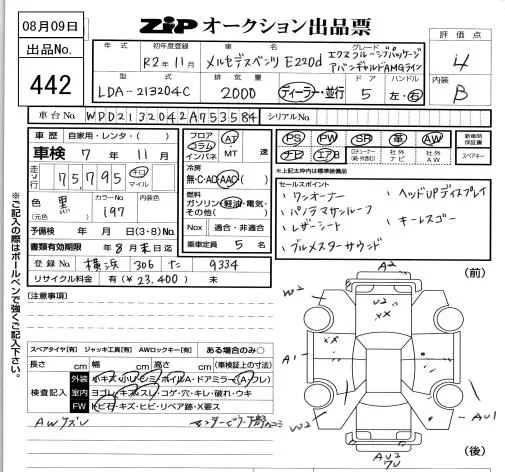 08月09日
ZIP オークション出品票
出品No.
442
年式 初年度登録 車名 グレード
R2年11月 メルセデスベンツ E220d エクスクルーシブパッケージ
アバンギャルドAMGライン
型式 排気量 ドア ハンドル
LDA-213204C 2000 ディーラー・並行 5 左・右
評価点
4
内装
B
車台No. WDD2132042A753584 シリアルNo.
車歴 自家用・レンタ・( )
車検 7年 11月
走行 75,795 キロ マイル
色 黒 (元色) カラーNo. 197 内装色
予備検 年 月 日(3・8)No.
書類有効期限 年8月末日迄
登録No. 横浜 306 た 9334
リサイクル料金 有(¥23,400) 未
フロア コラム インパネ AT・MT 速
冷房 無・C・AD・AAC
燃料 ガソリン・軽油・電気・その他( )
Nox 適合・非適合
乗車定員 5 名
PS PW SR 革 AW
ナビ エアB 社外ナビ 社外AW
新車時保証書
スペアキー
*上記太枠内は標準装備品
セールスポイント
・ワンオーナー ・ヘッドUPディスプレイ
・パノラマサンルーフ
・レザーシート ・キーレスゴー
・ブルメスターサウンド
※ご記入の際はボールペンで強くご記入下さい。
[注意事項]
スペアタイヤ[有] ジャッキ工具[有] AWロックキー[有] ある場合のみ○
長さ cm 幅 cm 高さ cm (車検証上の寸法)
検査記入
外装 小キズ・小凹・シミ・ホイルA・ドアミラー(A・フレ)
室内 ヨゴレ・キズ・スレ・コゲ・穴・キレ・破れ・ウキ
FW トビ石・キズ・ヒビ・リペア跡・X要ス
AWキズ
(前)
A2
W2
U2
XX
A1
XX
W2
AU1
AU2
(後)